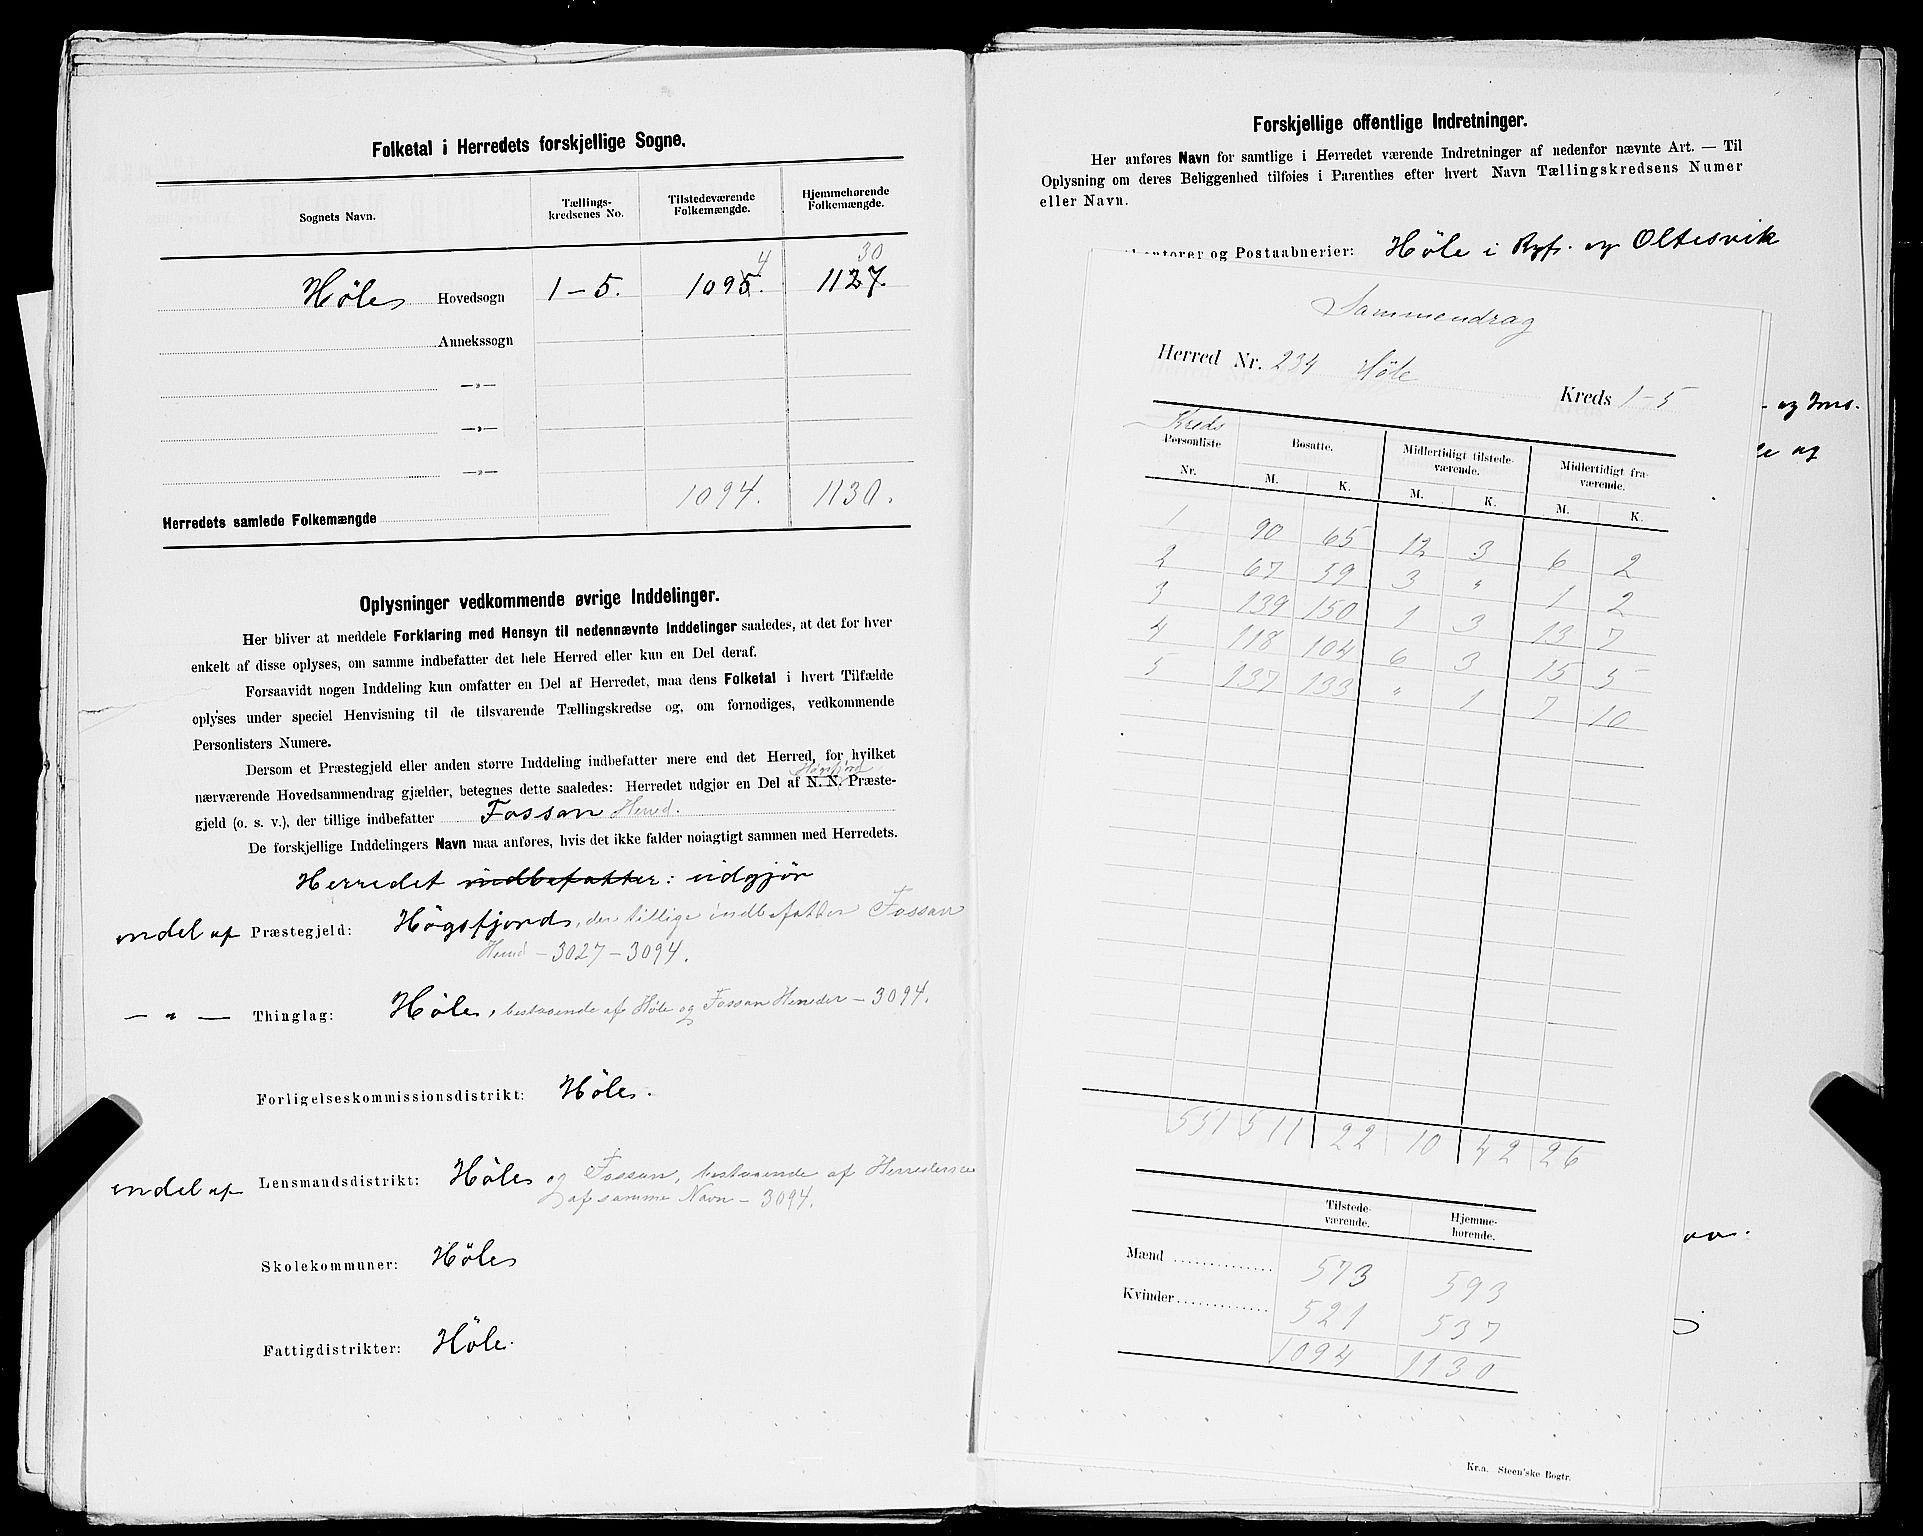 Folketal i Herredets forskjellige Sogne.
Sognets Navn. Tællings-kredsenes No. Tilstedeværende Folkemængde. Hjemmehørende Folkemængde.
4 30
Høle Hovedsogn 1-5. 1095. 1127.
Annekssogn
—»—
—»—
—»—
1094. 1130.
Herredets samlede Folkemængde
Oplysninger vedkommende øvrige Inddelinger.
Her bliver at meddele Forklaring med Hensyn til nedennævnte Inddelinger saaledes, at det for hver
enkelt af disse oplyses, om samme indbefatter det hele Herred eller kun en Del deraf.
Forsaavidt nogen Inddeling kun omfatter en Del af Herredet, maa dens Folketal i hvert Tilfælde
oplyses under speciel Henvisning til de tilsvarende Tællingskredse og, om fornodiges, vedkommende
Personlisters Numere.
Dersom et Præstegjeld eller anden større Inddeling indbefatter mere end det Herred, for hvilket
Høgsfjord
nærværende Hovedsammendrag gjælder, betegnes dette saaledes: Herredet udgjør en Del af N. N. Præste-
gjeld (o. s. v.), der tillige indbefatter Fossan Herred.
De forskjellige Inddelingers Navn maa anføres, hvis det ikke falder noiagtigt sammen med Herredets.
Herredet indbefatter: udgjør
endel af Præstegjeld: Høgsfjord, der tillige indbefatter Fossan
Herred - 3027 - 3094.
— " — Thinglag: Høle, bestaaende af Høle og Fossan Herreder - 3094.
Forligelseskommissionsdistrikt: Høle.
endel af Lensmandsdistrikt: Høle og Fossan, bestaaende af Herrederne
af samme Navn - 3094.
Skolekommuner: Høle
Fattigdistrikter: Høle.
Forskjellige offentlige Indretninger.
Her anføres Navn for samtlige i Herredet værende Indretninger af nedenfor nævnte Art. — Til
Oplysning om deres Beliggenhed tilføies i Parenthes efter hvert Navn Tællingskredsens Numer
eller Navn.
og Postaabnerier: Høle i Ryf. og Oltesvik
Sammendrag
Herred Nr. 234 Høle Kreds 1-5
og
af
Kreds
Personliste Nr. Bosatte. Midlertidigt tilstedeværende. Midlertidigt fraværende.
M. K. M. K. M. K.
1 90 65 12 3 6 2
2 67 59 3 " 1 2
3 139 150 1 3 13 7
4 118 104 6 3 15 5
5 137 133 " 1 7 10
551 511 22 10 42 26
Tilstedeværende. Hjemmehørende.
Mænd 573 593
Kvinder 521 537
1094 1130
Kr.a. Steen'ske Bogtr.